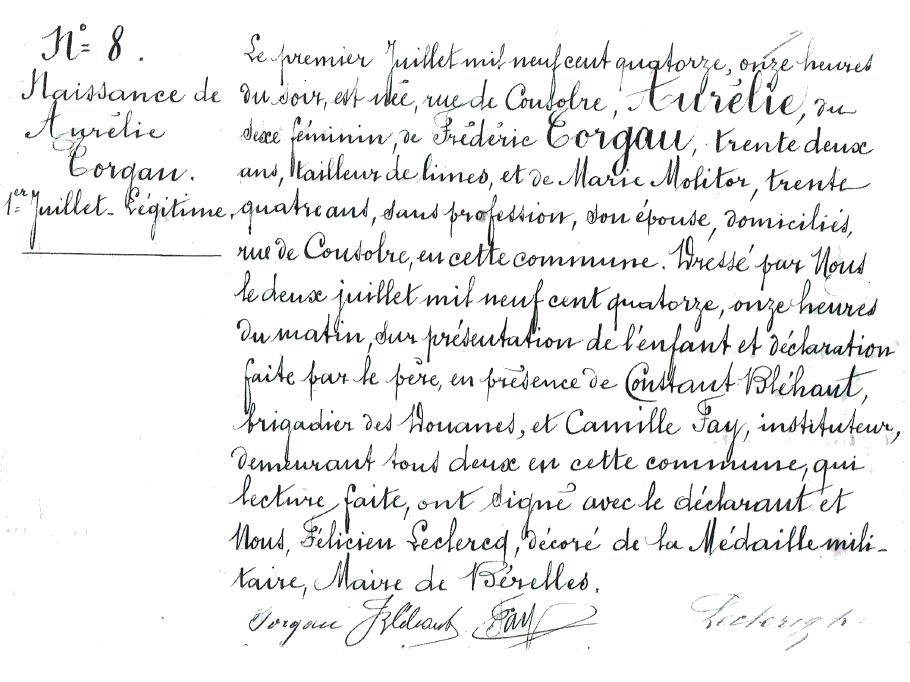 N° 8.
Naissance de
Aurélie
Torgau.
1er Juillet - Légitime.
Le premier Juillet mil neuf cent quatorze, onze heures
du soir, est née, rue de Cousolre, Aurélie, du
sexe féminin, de Frédéric Torgau, trente deux
ans, tailleur de limes, et de Marie Molitor, trente
quatre ans, sans profession, son épouse, domiciliés,
rue de Cousolre, en cette commune. Dressé par Nous
le deux juillet mil neuf cent quatorze, onze heures
du matin, sur présentation de l'enfant et déclaration
faite par le père, en présence de Constant Bléhaut,
brigadier des Douanes, et Camille Fay, instituteur,
demeurant tous deux en cette commune, qui
lecture faite, ont signé avec le déclarant et
Nous, Félicien Leclercq, décoré de la Médaille mili-
taire, Maire de Bérelles.
Torgau Bléhaut Fay Leclercq f